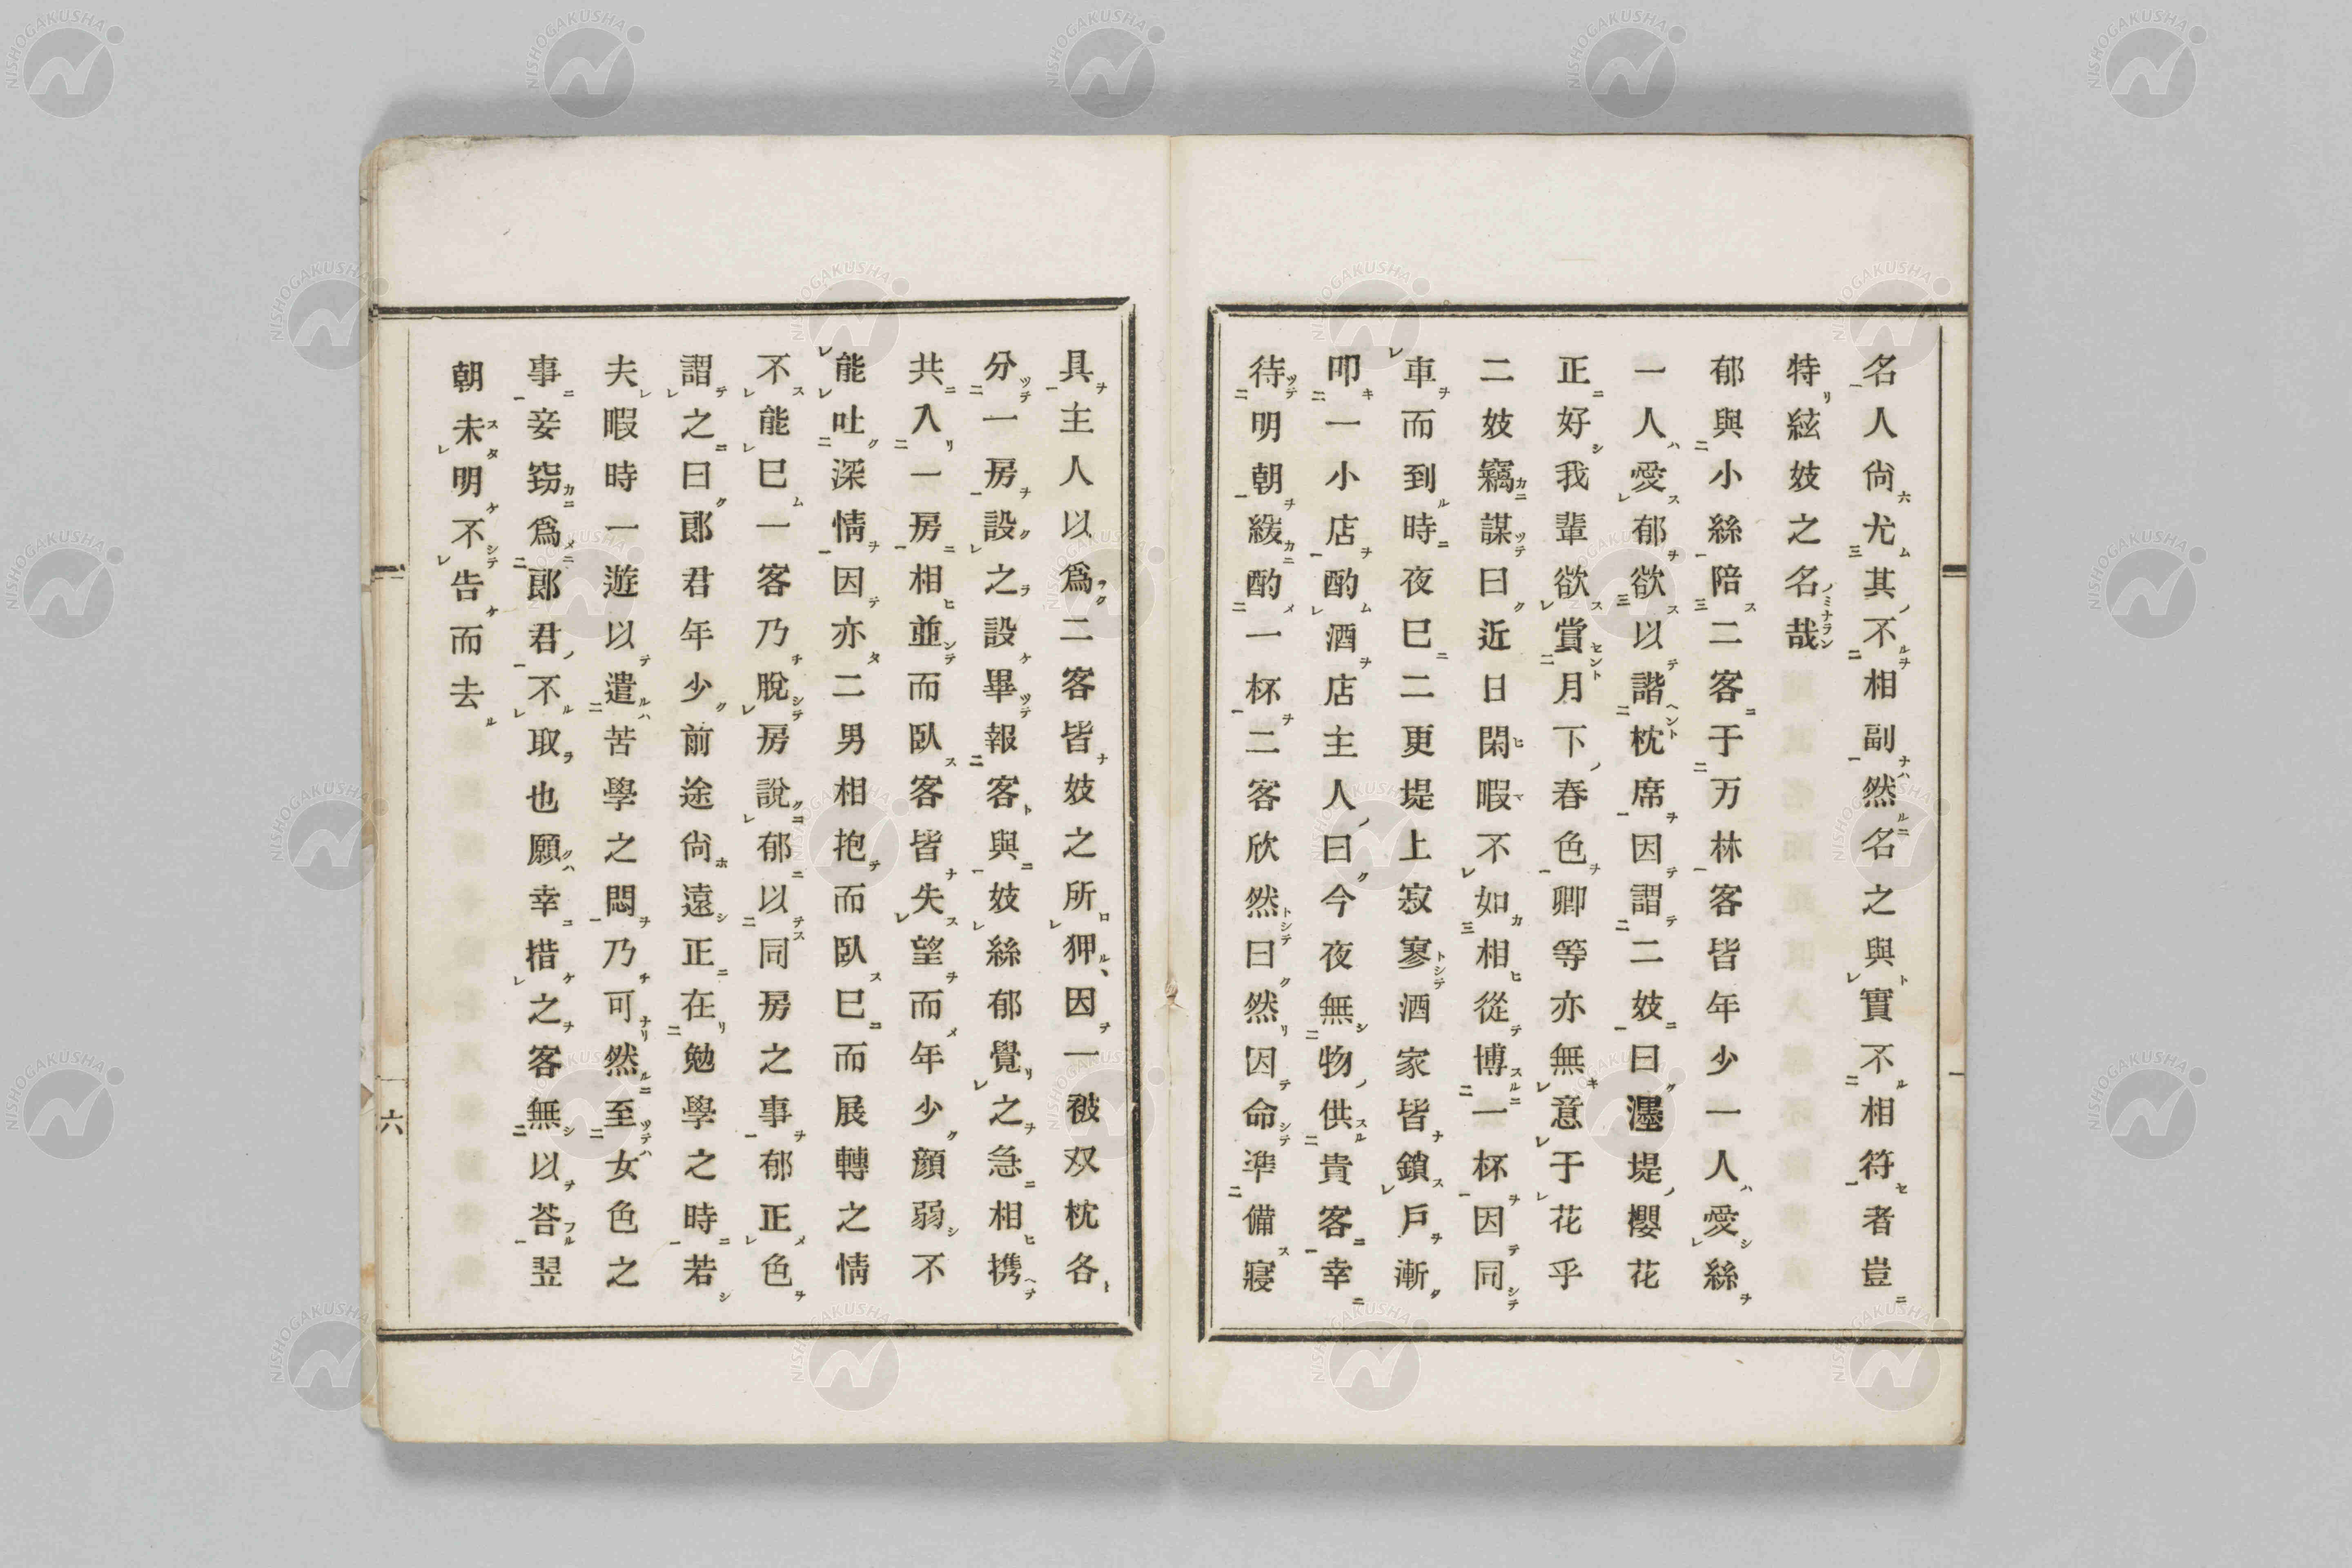 名人尙尤其不相副然名之與實不相符者豈
特絃妓之名哉
郁與小絲陪二客于万林客皆年少一人愛絲
一人愛郁欲以諧枕席因謂二妓曰濹堤櫻花
正好我輩欲賞月下春色卿等亦無意于花乎
二妓竊謀曰近日閑暇不如相從博一杯因同
車而到時夜已二更堤上寂寥酒家皆鎖戶漸
叩一小店酌酒店主人曰今夜無物供貴客幸
待明朝緩酌一杯二客欣然曰然因命準備寢
具主人以爲二客皆妓之所狎、因一被双枕各
分一房設之設畢報客與妓絲郁覺之急相携
共入一房相並而臥客皆失望而年少顔弱不
能吐深情因亦二男相抱而臥已而展轉之情
不能已一客乃脫房說郁以同房之事郁正色
謂之曰郞君年少前途尙遠正在勉學之時若
夫暇時一遊以遣苦學之悶乃可然至女色之
事妾窃爲郞君不取也願幸措之客無以荅翌
朝未明不告而去
六
NISHOGAKUSHA